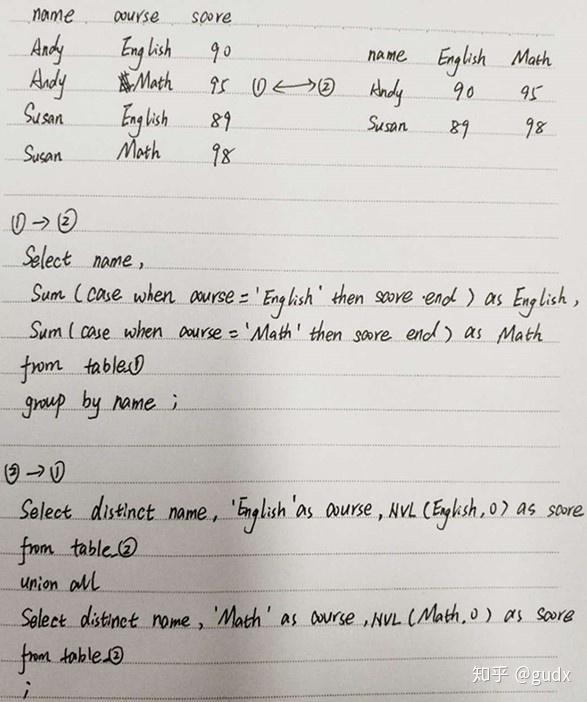 name course score
Andy English 90
Andy Math 95
Susan English 89
Susan Math 98
① ⟷ ②
name English Math
Andy 90 95
Susan 89 98
① → ②
Select name,
Sum (case when course = 'English' then score end) as English,
Sum (case when course = 'Math' then score end) as Math
from table①
group by name ;
② → ①
Select distinct name, 'English' as course, NVL (English, 0) as score
from table②
union all
Select distinct name, 'Math' as course, NVL (Math, 0) as score
from table②
;
知乎 @gudx